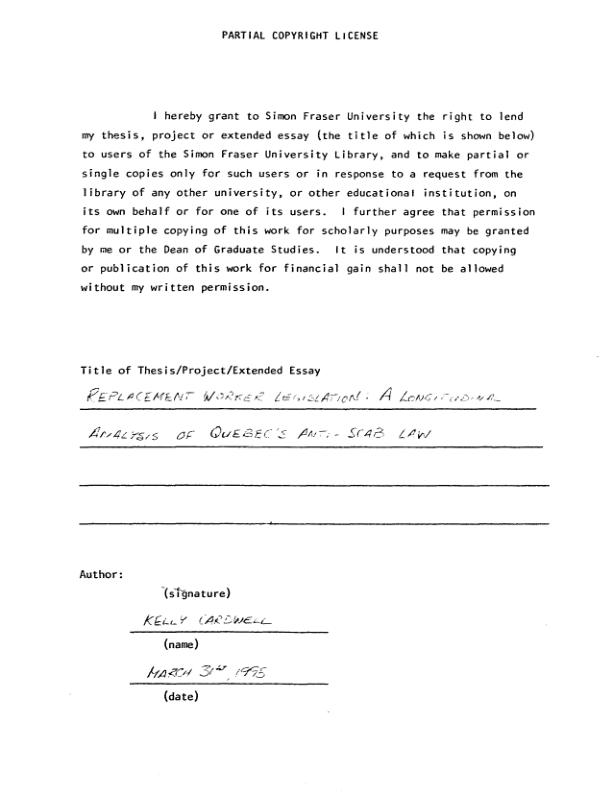 PARTIAL COPYRIGHT LICENSE
I hereby grant to Simon Fraser University the right to lend
my thesis, project or extended essay (the title of which is shown below)
to users of the Simon Fraser University Library, and to make partial or
single copies only for such users or in response to a request from the
library of any other university, or other educational institution, on
its own behalf or for one of its users. I further agree that permission
for multiple copying of this work for scholarly purposes may be granted
by me or the Dean of Graduate Studies. It is understood that copying
or publication of this work for financial gain shall not be allowed
without my written permission.
Title of Thesis/Project/Extended Essay
REPLACEMENT WORKER LEGISLATION: A LONGITUDINAL
ANALYSIS OF QUEBEC'S ANTI-SCAB LAW
Author:
(signature)
KELLY CARDWELL
(name)
MARCH 31st, 1995
(date)